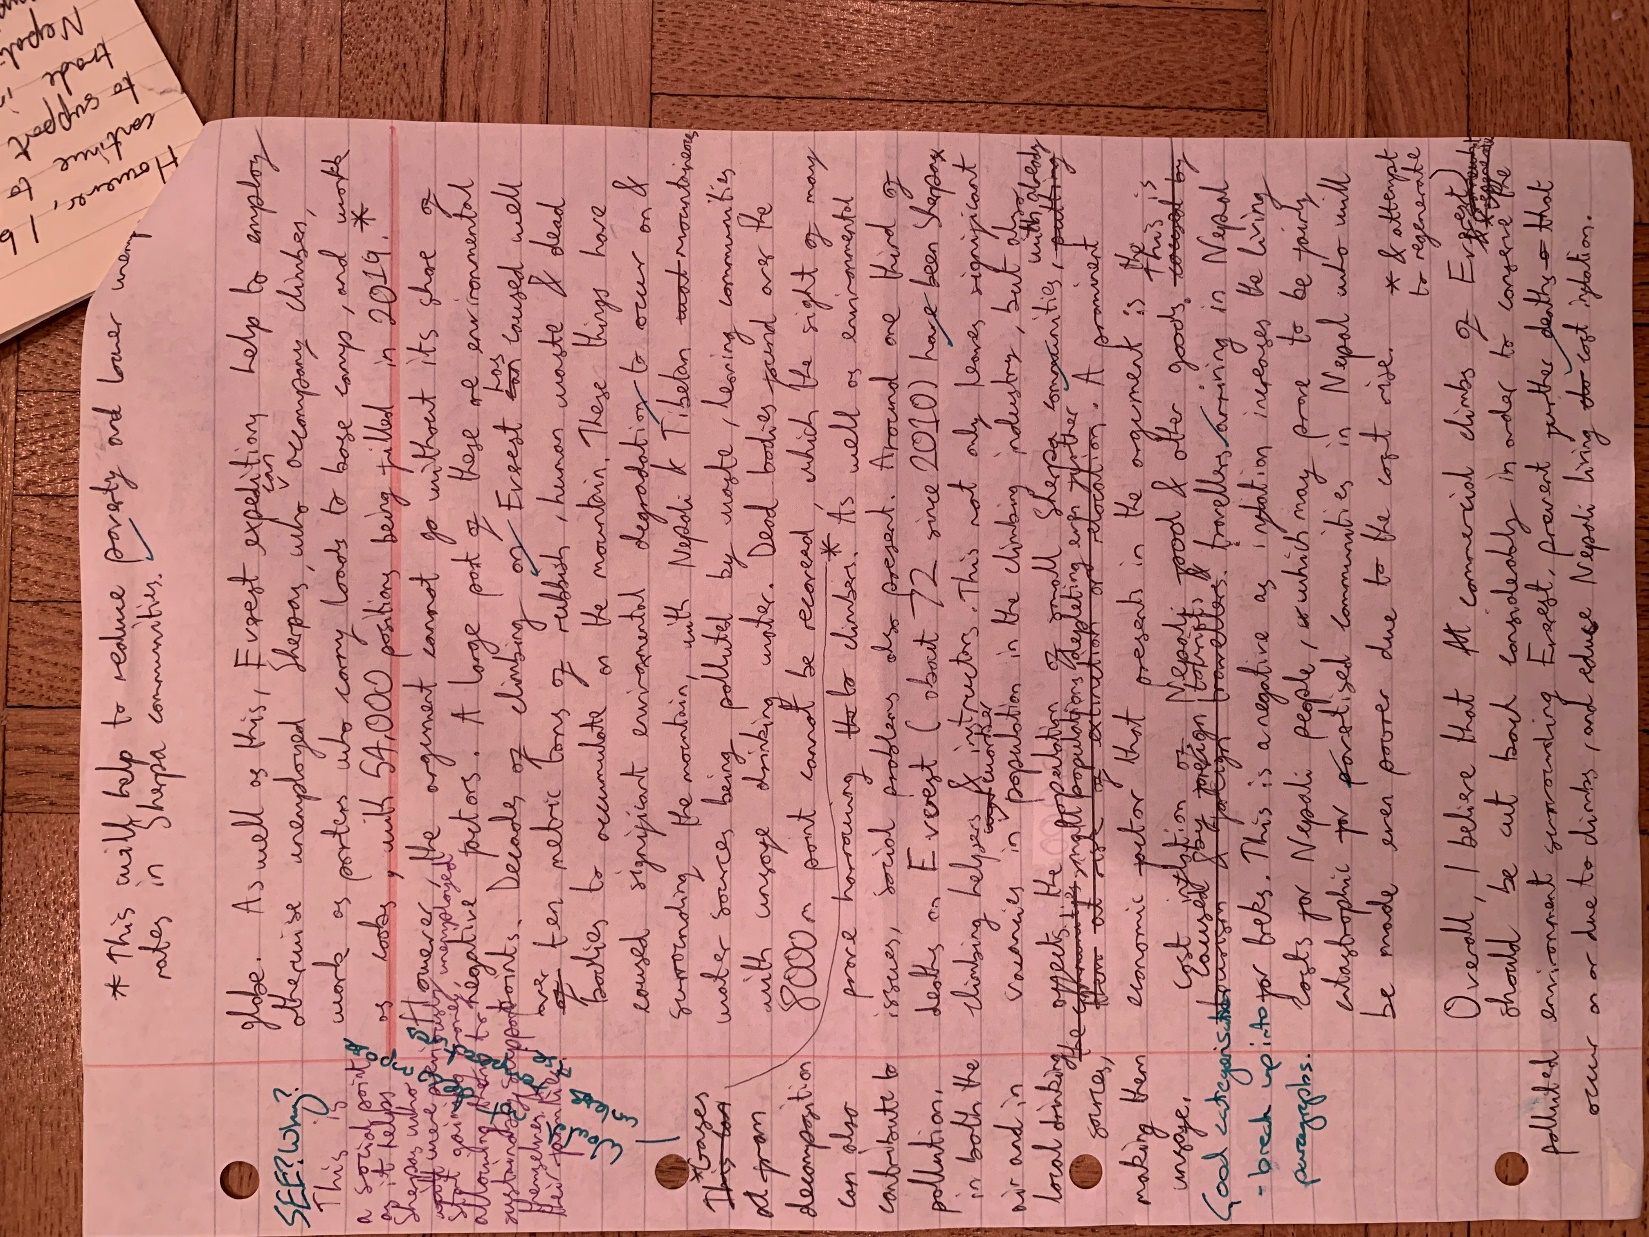 * This will help to reduce poverty and lower unemp
rates in Sherpa communities.
globe. As well as this, Everest expedition can help to employ
otherwise unemployed Sherpas, who accompany climbers,
work as porters who carry loads to base camp, and work
as cooks, with 54,000 positions being filled in 2019. *
However, the argument cannot go without its share of
negative factors. A large part of these are environmental
points. Decades of climbing on Everest has caused well
over ten metric tons of rubbish, human waste & dead
bodies to accumulate on the mountain. These things have
caused significant environmental degradation to occur on &
surrounding the mountain, with Nepali & Tibetan mountaineous
water sources being polluted by waste, leaving communities
with unsafe drinking water. Dead bodies found over the
8000m point cannot be recovered, which the sight of may
prove harrowing to climbers.* As well as environmental
issues, social problems also present. Around one third of
deaths on Everest (about 72 since 2010) have been Sherpas
climbing helpers & instructors. This not only leaves significant
vacancies in population in the climbing industry, but also
affects the population of small Sherpa communities, with already
small populations depleting even further. A prominent
economic factor that presents in the argument is the
cost inflation of Nepali food & other goods. This is
caused by foreign tourists & travellers arriving in Nepal
for treks. This is a negative as inflation increases the living
costs for Nepali people, which may prove to be fairly
catastrophic for povertised communities in Nepal who will
be made even poorer due to the cost rise.
* & attempt
to regenerate
Overall, I believe that commercial climbs of Everest
should be cut back considerably in order to conserve * the
polluted environment surrounding Everest, prevent further deaths that
occur on or due to climbs, and reduce Nepali living cost inflation.
SEE? Why?
This is
a social point
as it helps
Sherpas who
were previously unemployed
start gaining money,
allowing them to
sustain and support
themselves &
their families.
* Gases
decomposition
can also
contribute to
pollution,
in both the
air and in
local drinking
sources,
making them
unsafe.
Good categorisation
- break up into
paragraphs.
However, I b
continue to
to support
trade in
Nepali